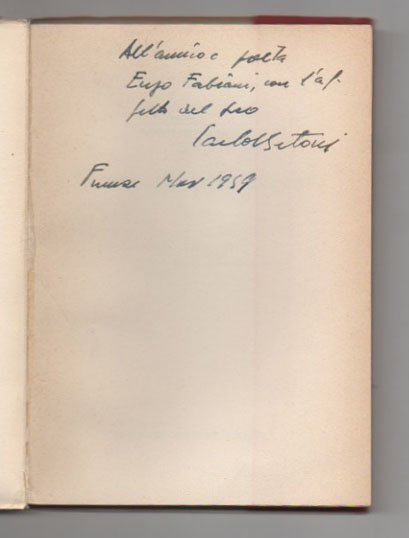 All'amico e poeta
Enzo Fabiani, con l'af-
fetto del suo
Carlo Betocchi
Firenze Mar 1959